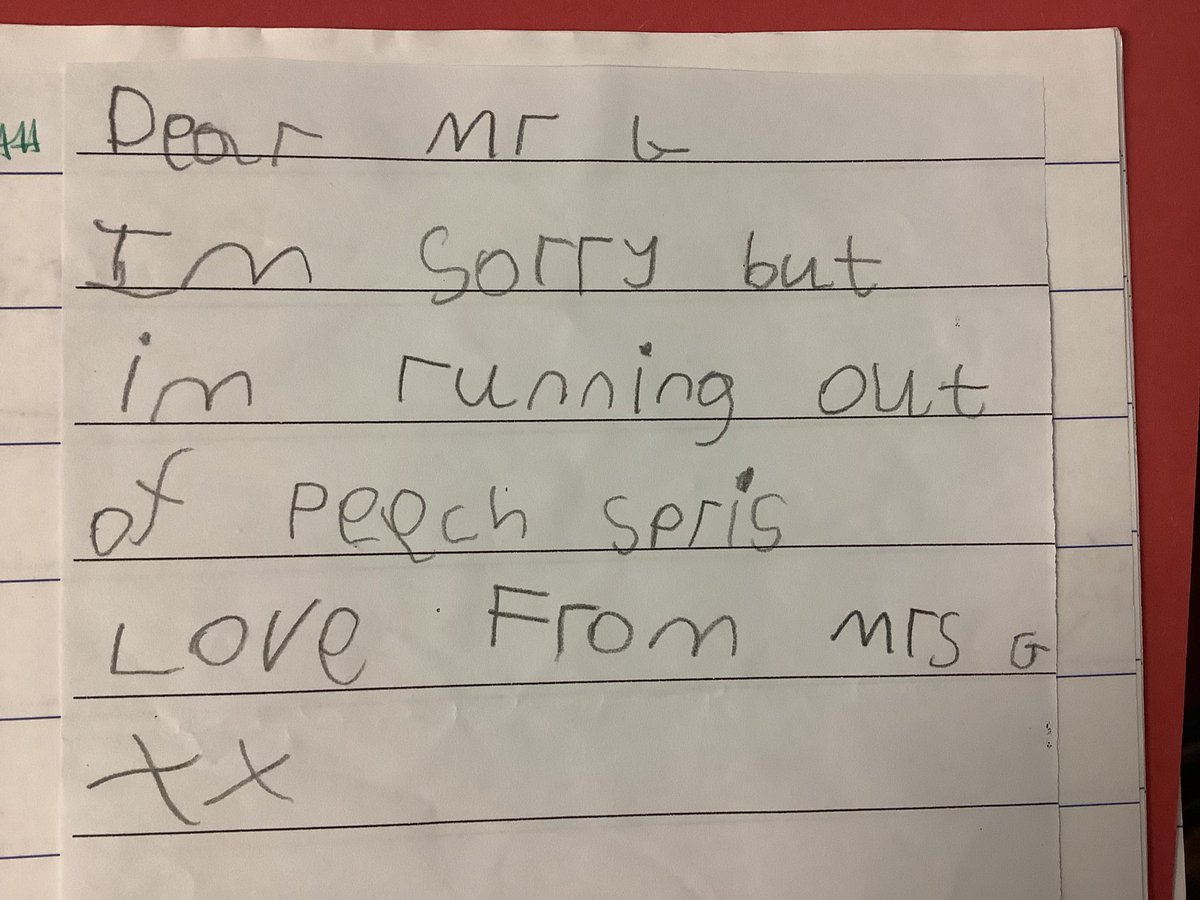 Dear Mr G
Im Sorry but
im running out
of peech spris
Love From mrs G
xx